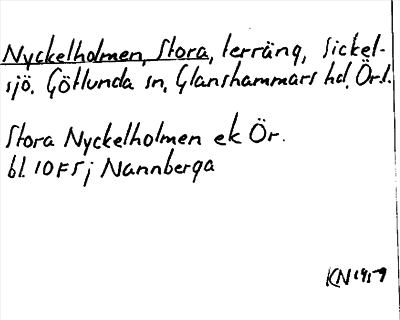 Nyckelholmen, Stora, terräng, Sickel-
sjö. Götlunda sn, Glanshammars hd, Ör.l.
Stora Nyckelholmen ek Ör.
bl. 10F5j Nannberga
KN 1959